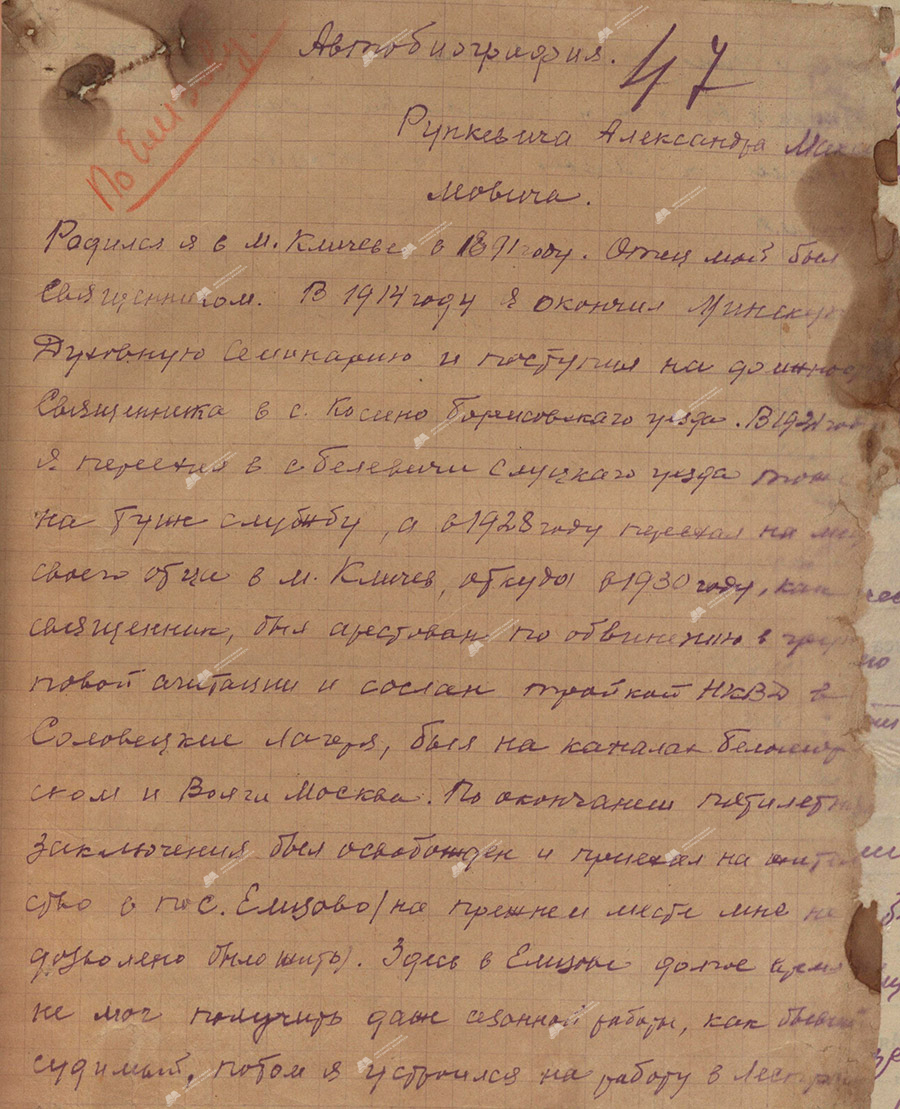 Автобиография.
47
По Елизову.
Рупкевича Александра
мовича.
Родился я в м. Кличеве в 1891 году. Отец мой был
священником. В 1914 году я окончил Минскую
Духовную Семинарию и поступил на должнос
Священника в с. Косино Борисовского уезда. В 1921 год
я переехал в с Белевичи Слуцкаго уезда тоже
на туж службу, а в 1928 году переехал на
своего отца в м. Кличев, откуда в 1930 году, как
священник, был арестован по обвинению в груп
повой агитации и сослан тройкой НКВД в
Соловецкие лагеря, был на каналах Беломор
ском и Волга Москва. По окончании пятилетн
заключения был освобожден и приехал на жител
ство в пос. Елизово/на прежнем месте мне не
дозволено было жить). Здесь в Елизове долгое время
не мог получить даж сезонной работы, как бывший
судимый, потом я устроился на работу в Леспро